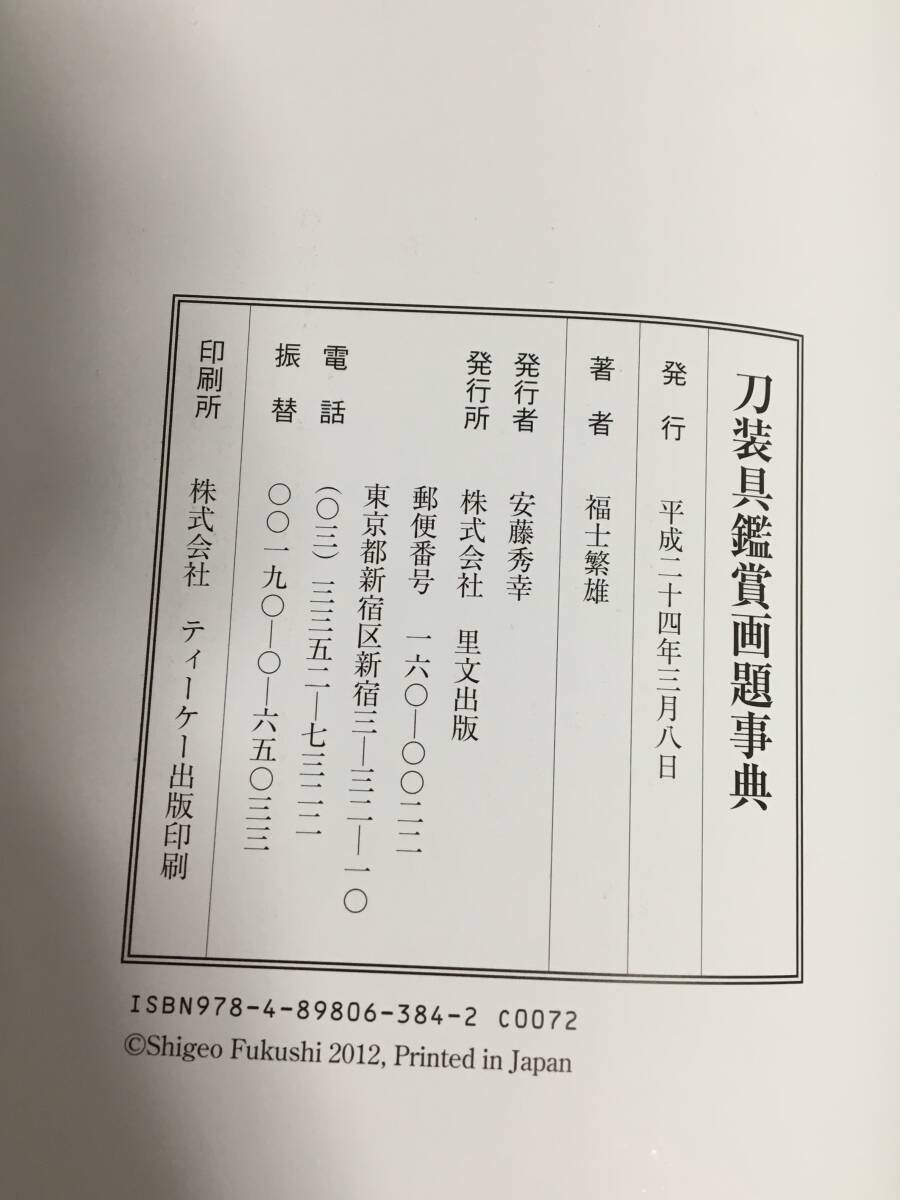 刀装具鑑賞画題事典
発行 平成二十四年三月八日
著者 福士繁雄
発行者 安藤秀幸
発行所 株式会社 里文出版
郵便番号 一六〇―〇〇二二
東京都新宿区新宿三―三二―一〇
電話 (〇三)三三五二―七三二二
振替 〇〇一九〇―〇―六五〇三三
印刷所 株式会社 ティーケー出版印刷
ISBN978-4-89806-384-2 C0072
©Shigeo Fukushi 2012, Printed in Japan